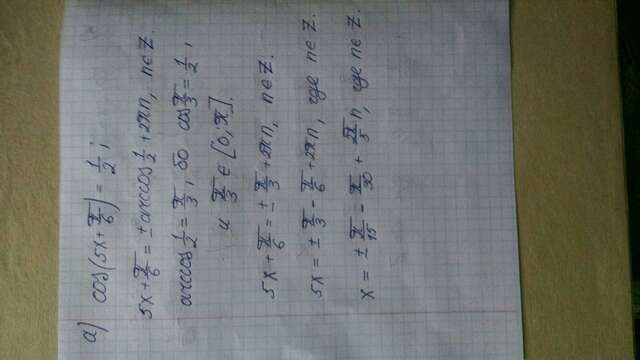 а) cos(5x + π/6) = 1/2;
5x + π/6 = ± arccos 1/2 + 2πn, n∈Z.
arccos 1/2 = π/3, бо cos π/3 = 1/2,
и π/3 ∈ [0; π].
5x + π/6 = ± π/3 + 2πn, n∈Z.
5x = ± π/3 - π/6 + 2πn, где n∈Z.
x = ± π/15 - π/30 + 2π/5 n, где n∈Z.